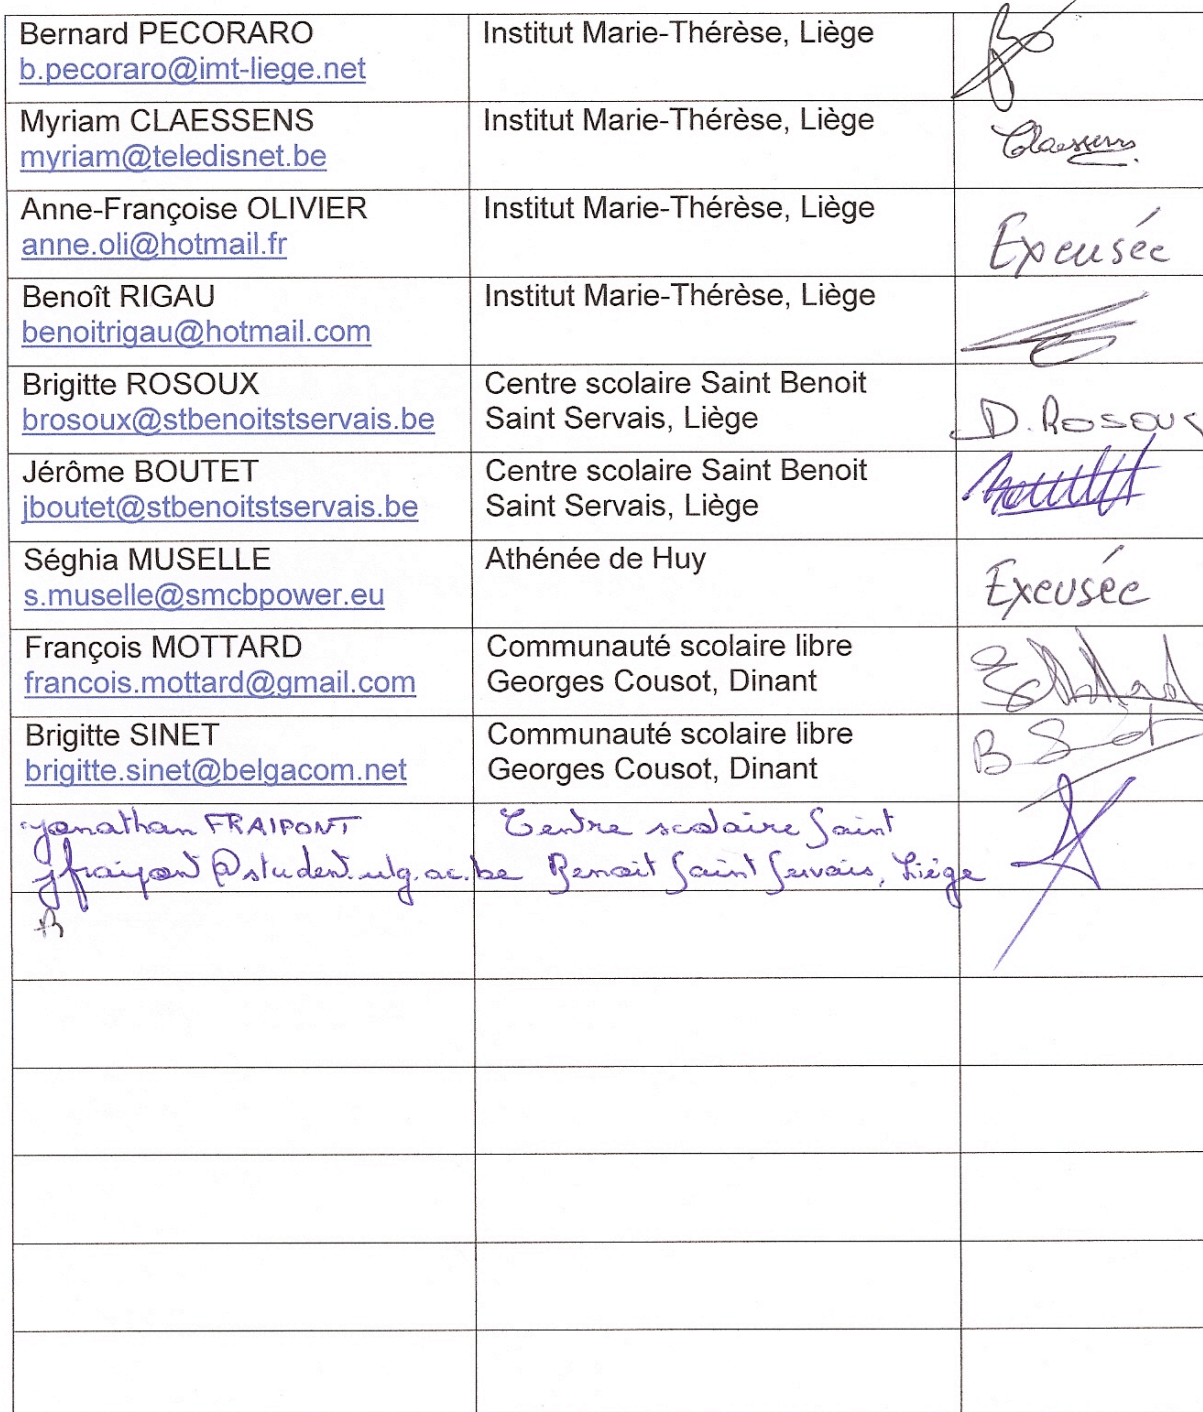 Bernard PECORARO
b.pecoraro@imt-liege.net
Institut Marie-Thérèse, Liège
Myriam CLAESSENS
myriam@teledisnet.be
Institut Marie-Thérèse, Liège
Claessens
Anne-Françoise OLIVIER
anne.oli@hotmail.fr
Institut Marie-Thérèse, Liège
Excusée
Benoît RIGAU
benoitrigau@hotmail.com
Institut Marie-Thérèse, Liège
Brigitte ROSOUX
brosoux@stbenoitstservais.be
Centre scolaire Saint Benoit
Saint Servais, Liège
Jérôme BOUTET
jboutet@stbenoitstservais.be
Centre scolaire Saint Benoit
Saint Servais, Liège
Séghia MUSELLE
s.muselle@smcbpower.eu
Athénée de Huy
Excusée
François MOTTARD
francois.mottard@gmail.com
Communauté scolaire libre
Georges Cousot, Dinant
Brigitte SINET
brigitte.sinet@belgacom.net
Communauté scolaire libre
Georges Cousot, Dinant
Jonathan FRAIPONT
jfraipont@student.ulg.ac.be
Centre scolaire Saint
Benoit Saint Servais, Liège